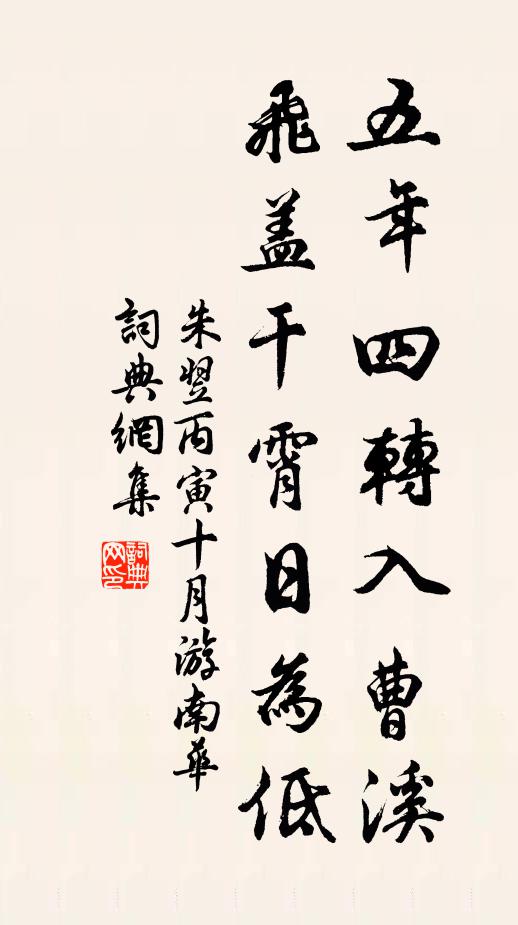 五年四轉入曹溪
飛盖干霄日為低
朱翌丙寅十月游南華
詞典網集
詞典网印